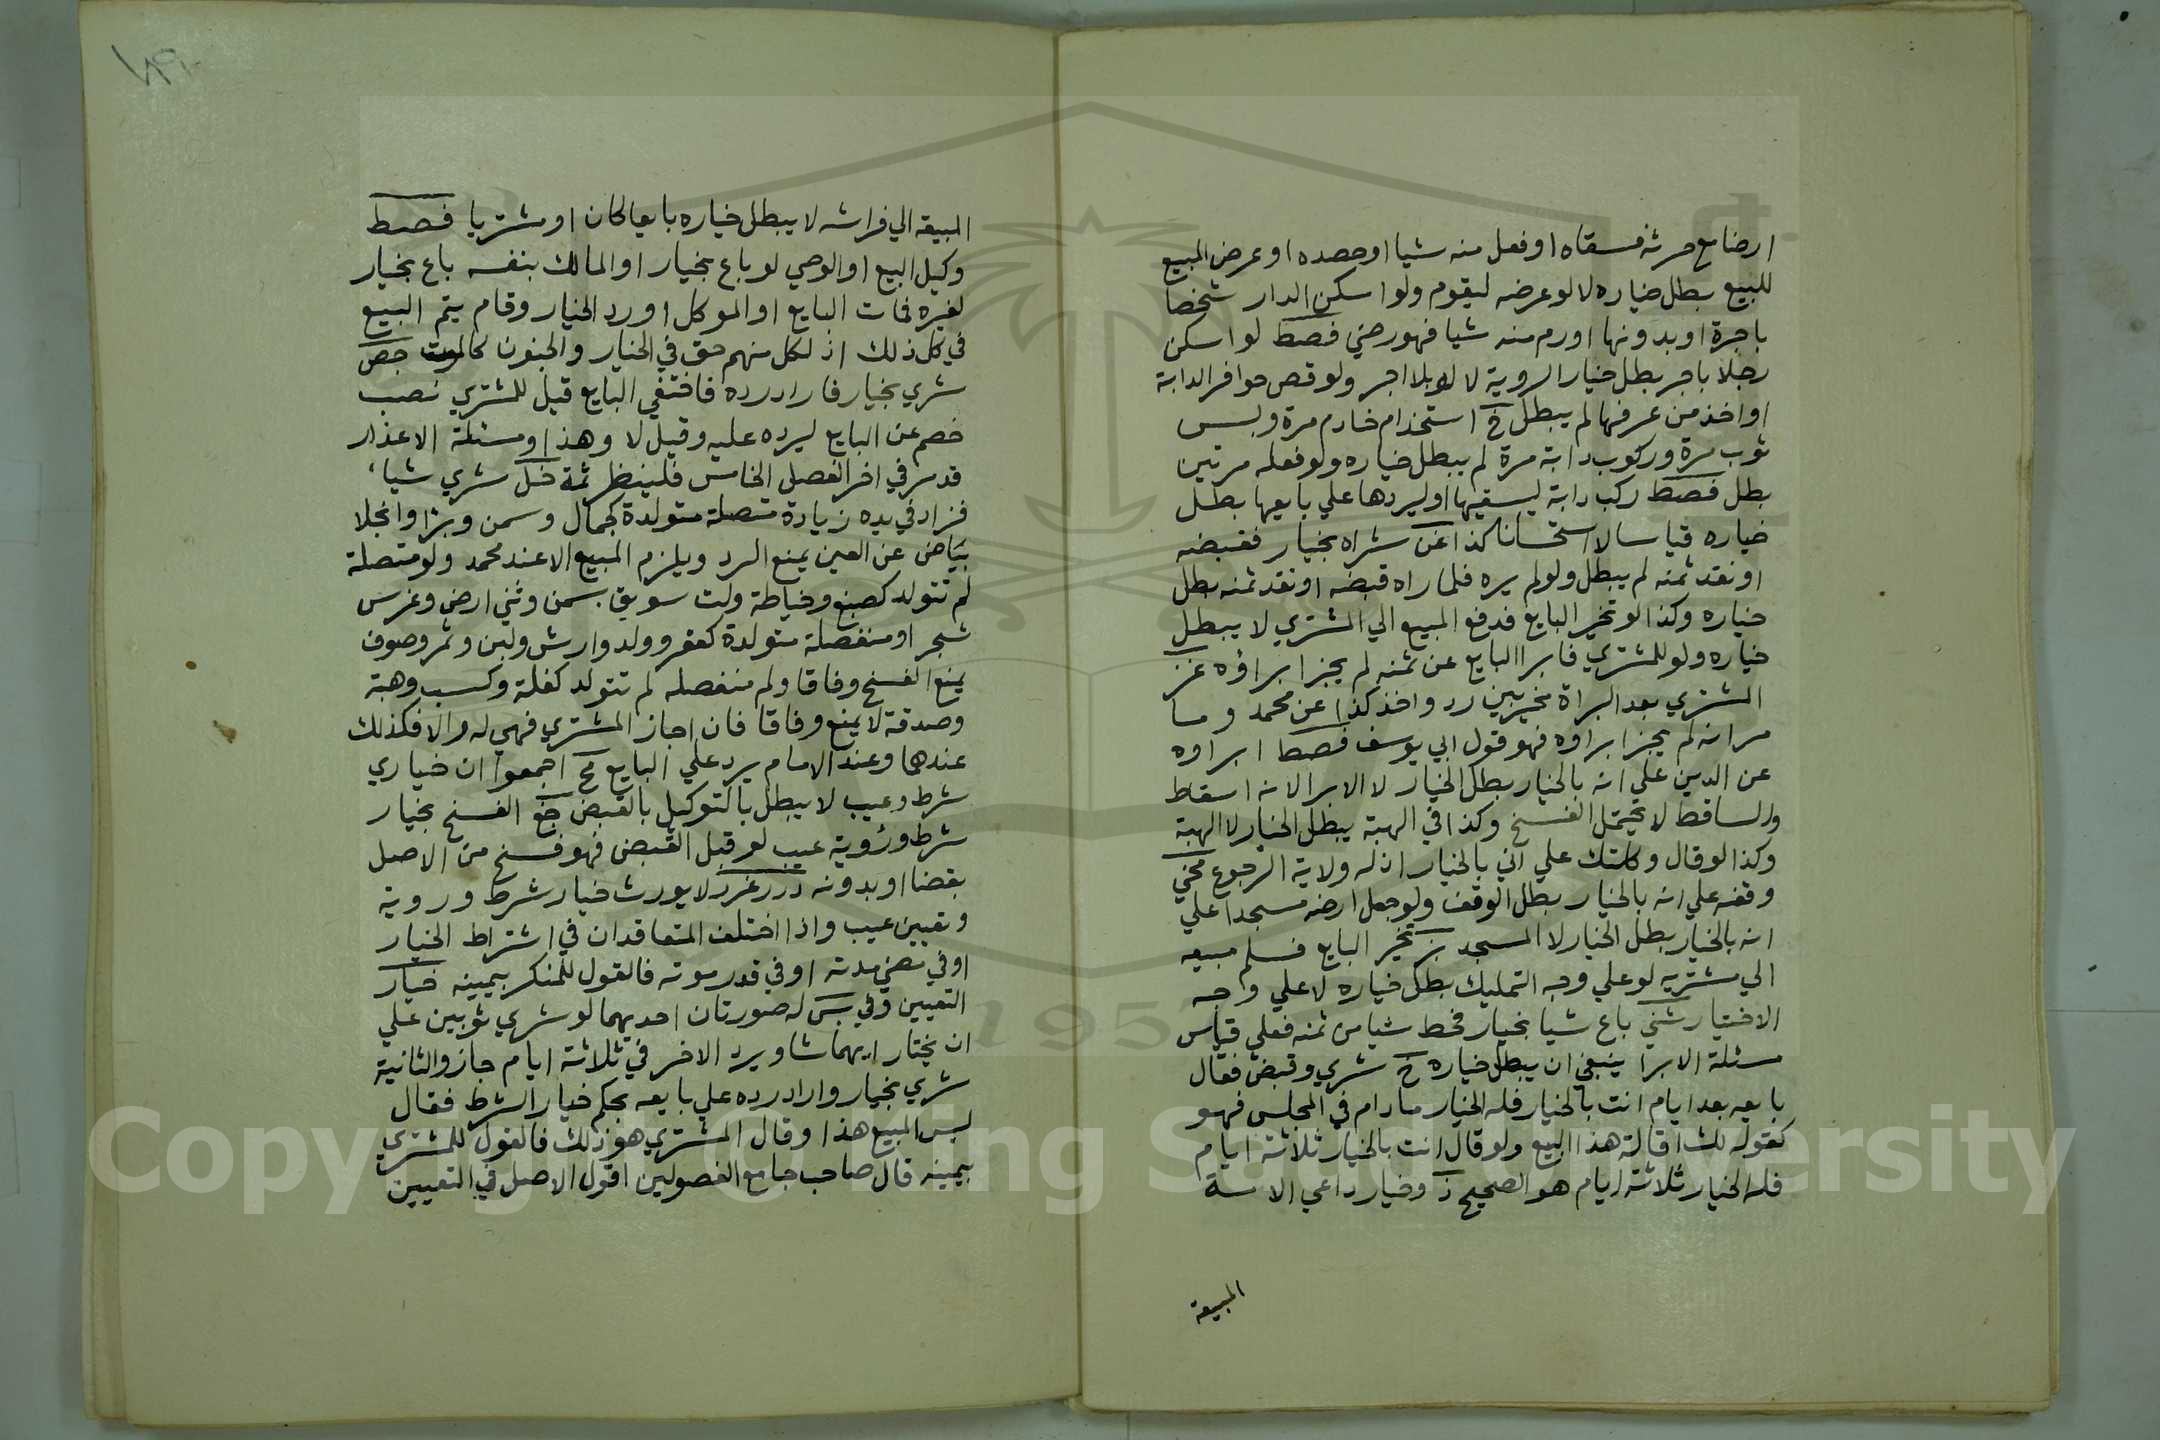 ارضا مع حرثه فسقاه او فعل منه شيا او حصده او عرض المبيع
للبيع بطل خياره لا لو عرضه ليقوم ولو اسكن الدار شخصا
باجرة او بدونها او رم منه شيا فهو رضي فصط لو اسكن
رجلا باجر بطل خيار الروية لا لو بلا اجر ولو قص حوافر الدابة
او اخذ من عرفها لم يبطل خ استخدام خادم مرة ولبس
ثوب مرة وركوب دابة مرة لم يبطل خياره ولو فعله مرتين
بطل فصط ركب دابة ليسقيها او ليردها علي بايعها بطل
خياره قياسا لا استحسانا كذا عن شراه بخيار فقبضه
او نقد ثمنه لم يبطل ولو لم يره فلما راه قبضه او نقد ثمنه بطل
خياره وكذا لو تخير البايع فدفع المبيع الي المشتري لا يبطل
خياره ولو للمشتري فابرا البايع عن ثمنه لم يجز ابراؤه عز
المشتري بعد البراة مخير بين رد واخذ كذا عن محمد وما
مر انه لم يجز ابراوه فهو قول ابي يوسف فصط ابراوه
عن الدين علي انه بالخيار بطل الخيار لا الابرا لانه اسقاط
والساقط لا يحتمل الفسخ وكذا في الهبة يبطل الخيار لا الهبة
وكذا لو قال وكلتك علي اني بالخيار اذ له ولاية الرجوع مخي
وقفه علي انه بالخيار بطل الوقف ولو جعل ارضه مسجدا علي
انه بالخيار بطل الخيار لا المسجد بز تخير البايع فسلم مبيعه
الي مشتريه لو علي وجه التمليك بطل خياره لا علي وجه
الاختيار شخي باع شيا بخيار فحط شيا من ثمنه فعلي قياس
مسئلة الابرا ينبغي ان يبطل خياره خ شري وقبض فقال
بايعه بعد ايام انت بالخيار فله الخيار ما دام في المجلس فهو
كقوله لك اقالة هذا البيع ولو قال انت بالخيار ثلاثة ايام
فله الخيار ثلاثة ايام هو الصحيح ذ وخيار داعي الامة
المبيعة
المبيعة الي فراشه لا يبطل خياره بايعا كان او مشتريا فصط
وكيل البيع او الوصي لو باع بخيار او المالك بنفسه باع بخيار
لغيره فمات البايع او الموكل او رد الخيار وقام يتم البيع
في كل ذلك اذ لكل منهم حق في الخيار والجنون كالموت جص
شري بخيار فاراد رده فاختفي البايع قيل للمشتري نصب
خصم عن البايع ليرده عليه وقيل لا وهذا ومسئلة الاعذار
قد مر في اخر الفصل الخامس فلينظر ثمة خل شري شيا
فزاد في يده زيادة متصلة متولدة كجمال وسمن وبرا وانجلا
بياض عن العين يمنع الرد ويلزم المبيع الا عند محمد ولو متصلة
لم تتولد كصبغ وخياطة ولت سويق بسمن وثني ارض وغرس
شجر او منفصلة متولدة كعقر وولد وارش ولبن وثمر وصوف
يمنع الفسخ وفاقا ولم منفصله لم تتولد كغلة وكسب وهبة
وصدقة لا يمنع وفاقا فان اجاز المشتري فهي له والا فكذلك
عندهما وعند الامام يرد علي البايع مح اجمعوا ان خياري
شرط وعيب لا يبطل بالتوكيل بالقبض جغ الفسخ بخيار
شرط ورؤية عيب لو قبل القبض فهو فسخ من الاصل
بقضا او بدونه درر غرر لا يورث خيار شرط وروية
وتعيين عيب واذا اختلف المتعاقدان في اشتراط الخيار
او في مضي مدته او في قدر موته فالقول للمنكر بيمينه خيار
التعيين وفي بس له صورتان احديهما لو شري ثوبين علي
ان يختار ايهما شا ويرد الاخر في ثلاثة ايام جاز والثانية
شري بخيار واراد رده علي بايعه بحكم خيار الشرط فقال
ليس المبيع هذا وقال المشتري هو ذلك فالقول للمشتري
بيمينه قال صاحب جامع الفصولين اقول الاصل في التعيين
Copy King Saud University
1957